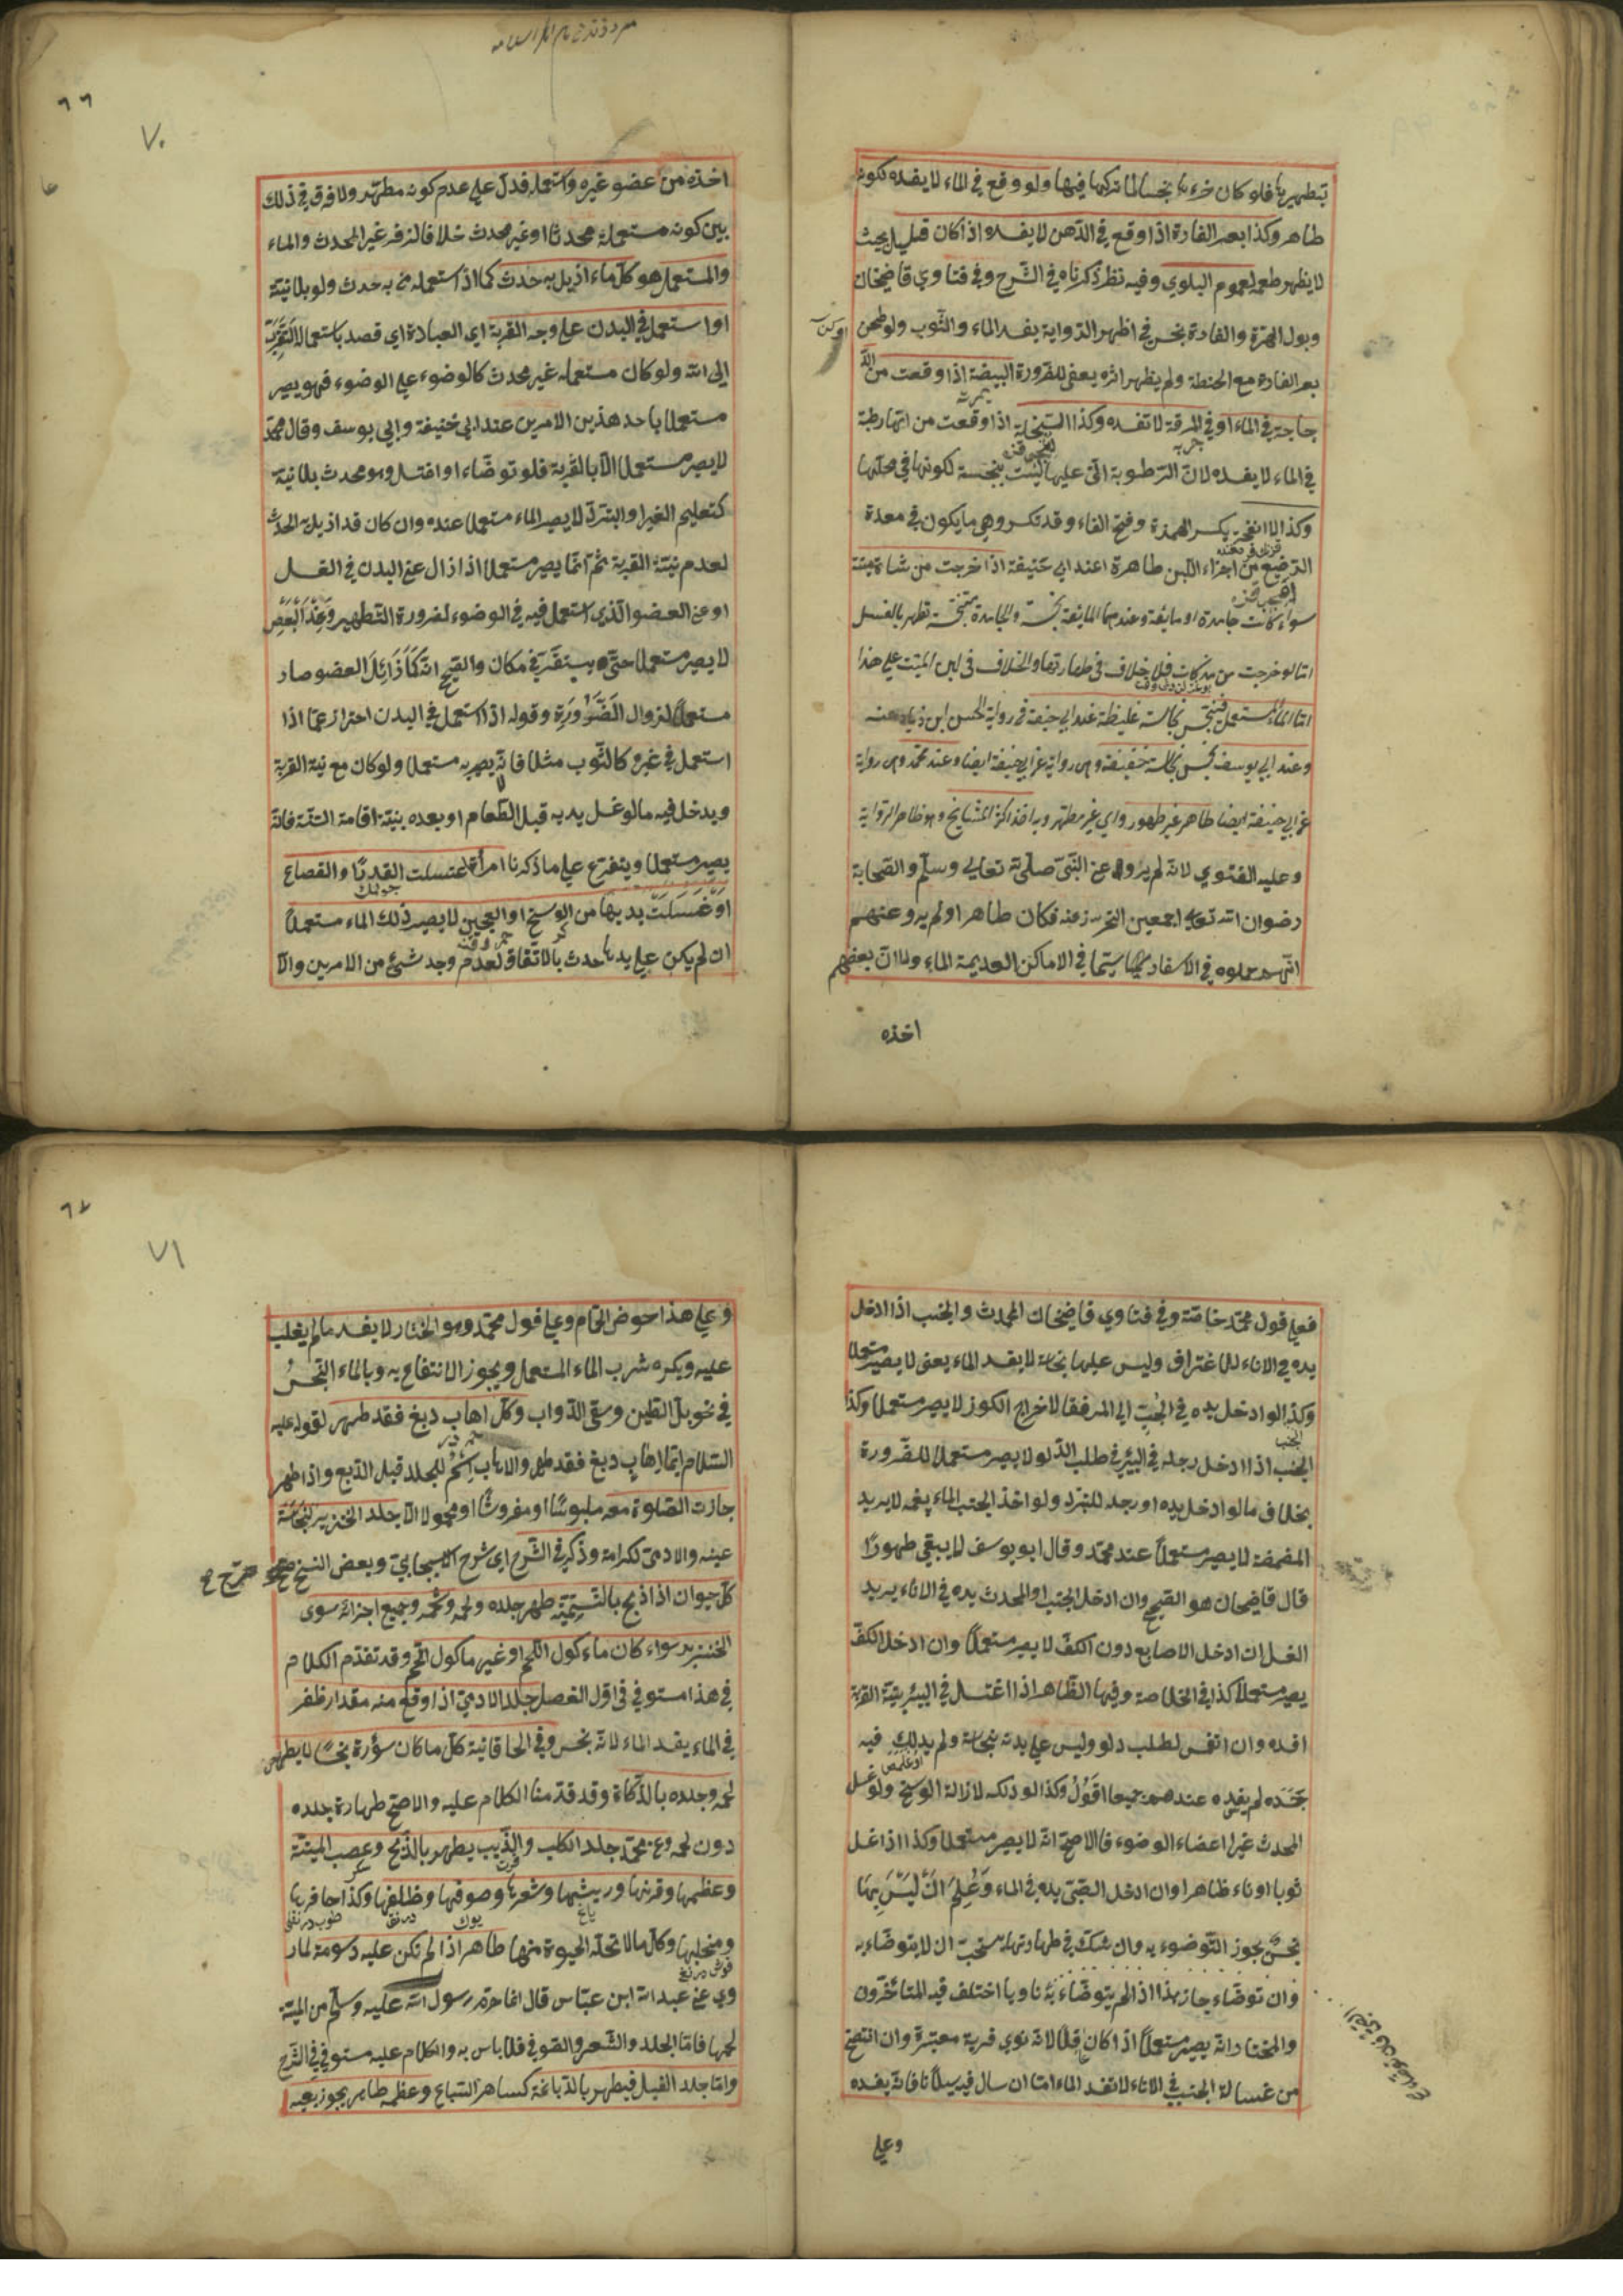 بتطهيرها فلو كان خرءها نجسا لما تركها فيها ولو وقع في الماء لا يفسده لكونه
طاهر وكذا بعر الفارة اذا وقع في الدهن لا يفسده اذا كان قليل بحيث
لا يظهر طعمه لعموم البلوي وفيه نظر ذكرناه في الشرح وفي فتاوي قاضيخان
وبول الهرة والفارة نجس في اظهر الرواية يفسد الماء والثوب ولو طحن
بعر الفارة مع الحنطة ولم يظهر اثره يعفى للضرورة البيضة اذا وقعت من الد
جاجة في الماء او في المرقة لا تفسده وكذا السخلة اذا وقعت من امها رطبة
في الماء لا يفسده لان الرطوبة التي عليها ليست بنجسة لكونها في محلها
وكذا الانفحة بكسر الهمزة وفتح الفاء وقد تكسر وهي ما يكون في معدة
الرضيع من اجزاء اللبن طاهرة عند ابي حنيفة اذا خرجت من شاة ميتة
سواء كانت جامدة او مايعة وعندهما المايعة نجسة والجامدة متنجسة تطهر بالغسل
اما لو خرجت من مذكات فلا خلاف في طهارتها والخلاف في لبن الميت على هذا
اما الماء المستعمل فنجس نجاسة غليظة عند ابي حنيفة في رواية الحسن ابن زياد عنه
وعند ابي يوسف نجس نجاسة خفيفة وهى رواية عن ابي حنيفة ايضا وعند محمد وهى رواية
عن ابي حنيفة ايضا طاهر غير طهور واي غير مطهر وبه اخذ اكثر المشايخ وهو ظاهر الرواية
وعليه الفتوي لانه لم يرو عن النبي صلى الله تعالى وسلم والصحابة
رضوان الله تعالى اجمعين التحرز عنه فكان طاهر او لم يرو عنهم
انهم حملوه في الاسفار سيما في الاماكن العديمة الماء ولما ان بعضهم
اخذه
٦٦
٧٠
اخذه من عضو غيره واستعمله فدل على عدم كونه مطهر ولا فرق في ذلك
بين كونه مستعمله محدثا او غير محدث خلافا لزفر غير المحدث والماء
والمستعمل هو كل ماء ازيل به حدث كما اذا استعمله من به حدث ولو بلا نية
او استعمل في البدن على وجه القربة اي العبادة اي قصد باستعماله التقرب
الى الله ولو كان مستعمله غير محدث كالوضوء على الوضوء فهو يصير
مستعملا باحد هذين الامرين عند ابي حنيفة وابي يوسف وقال محمد
لا يصير مستعملا الا بالقربة فلو توضاء او اغتسل وهو محدث بلا نية
كتعليم الغير او التبرد لا يصير الماء مستعملا عنده وان كان قد ازيل به الحدث
لعدم نية القربة ثم انما يصير مستعملا اذا زال عن البدن في الغسل
او عن العضو الذي استعمل فيه في الوضوء لضرورة التطهير وعند البعض
لا يصير مستعملا حتى يستقر في مكان والصحيح انه كما زائل العضو صار
مستعملا لزوال الضرورة وقوله اذا استعمل في البدن احتراز عما اذا
استعمل في غيره كالثوب مثلا فانه لا يصير به مستعملا ولو كان مع نية القربة
ويدخل فيه ما لو غسل يديه قبل الطعام او بعده بنية اقامة السنة فانه
يصير مستعملا ويتفرع على ما ذكرنا امرأة غسلت القدر او القصاع
او غسلت يديها من الوسخ او العجين لا يصير ذلك الماء مستعملا
ان لم يكن على يدها حدث بالاتفاق لعدم وجد شئ من الامرين والا
فعلى قول محمد خاصة وفي فتاوي قاضيخان المحدث والجنب اذا ادخل
يده في الاناء للاغتراف وليس عليها نجاسة لا يفسد الماء يعنى لا يصير مستعملا
وكذا لو ادخل يده في الجب الى المرفق لاخراج الكوز لا يصير مستعملا وكذا
الجنب اذا ادخل رجله في البئر في طلب الدلو لا يصير مستعملا للضرورة
بخلاف ما لو ادخل يده او رجله للتبرد ولو اخذ الجنب الماء بفمه لا يريد
المضمضة لا يصير مستعملا عند محمد وقال ابو يوسف لا يبقى طهورا
قال قاضيخان هو الصحيح وان ادخل الجنب او المحدث يده في الاناء يريد
الغسل ان ادخل الاصابع دون الكف لا يصير مستعملا وان ادخل الكف
يصير مستعملا كذا في الخلاصة وفيها الظاهر اذا اغتسل في البئر بنية القربة
افسده وان انغمس لطلب دلو وليس على بدنه نجاسة ولم يدلك فيه
جسده لم يفسده عندهم جميعا اقول وكذا لو دلكه لازالة الوسخ ولو غسل
المحدث غير اعضاء الوضوء فالاصح انه لا يصير مستعملا وكذا اذا غسل
ثوبا او اناء طاهرا وان ادخل الصبى يده في الماء وعلم ان ليس بها
نجس يجوز التوضوء به وان شك في طهارتها يستحب ان لا يتوضاء به
وان توضاء جاز هذا اذا لم يتوضاء به ناويا اختلف فيه المتاخرون
والمختار انه يصير مستعملا اذا كان عاقلا لانه نوي قربة معتبرة وان انتضح
من غسالة الجنب في الاناء لا تفسد الماء اما ان سال فيه سيلانا فانه يفسده
وعلى
٦٧
٧١
وعلى هذا حوض الحمام وعلى قول محمد وهو المختار لا يفسد ما لم يغلب
عليه ويكره شرب الماء المستعمل ويجوز الانتفاع به وبالماء النجس
في نحو بل الطين وسقى الدواب وكل اهاب دبغ فقد طهر لقوله عليه
السلام ايما اهاب دبغ فقد طهر والاهاب اسم للجلد قبل الدبغ واذا طهر
جازت الصلوة معه ملبوسا او مفروشا او محمولا الا جلد الخنزير لنجاسة
عينه والادمى لكرامة وذكر في الشرح اى شرح الاسبيجابي وبعض النسخ
كل حيوان اذا ذبح بالتسمية طهر جلده ولحمه وشحمه وجميع اجزائه سوى
الخنزير سواء كان ماءكول اللحم او غير ماكول اللحم وقد تقدم الكلام
في هذا مستوفي في اول الفصل جلد الادمي اذا وقع منه مقدار ظفر
في الماء يفسد الماء لانه نجس وفي الخاقانية كل ما كان سؤره نجسا لا يطهر
لحمه وجلده بالذكاة وقد قدمنا الكلام عليه والاصح طهارة جلده
دون لحمه وعن محمد جلد الكلب والذيب يطهر بالذبح وعصب الميتة
وعظمها وقرنها وريشها وشعرها وصوفها وظلفها وكذا حافرها
ومخلبها وكل ما لا تحله الحيوة منها طاهر اذا لم تكن عليه دسومة لما ر
وي عن عبد الله ابن عباس قال انما حرم رسول الله عليه وسلم من الميتة
لحمها فاما الجلد والشعر والصوف فلا باس به والكلام عليه مستوفي في الشرح
واما جلد الفيل فيطهر بالدباغة كسائر السباع وعظمه طاهر يجوز بيعه